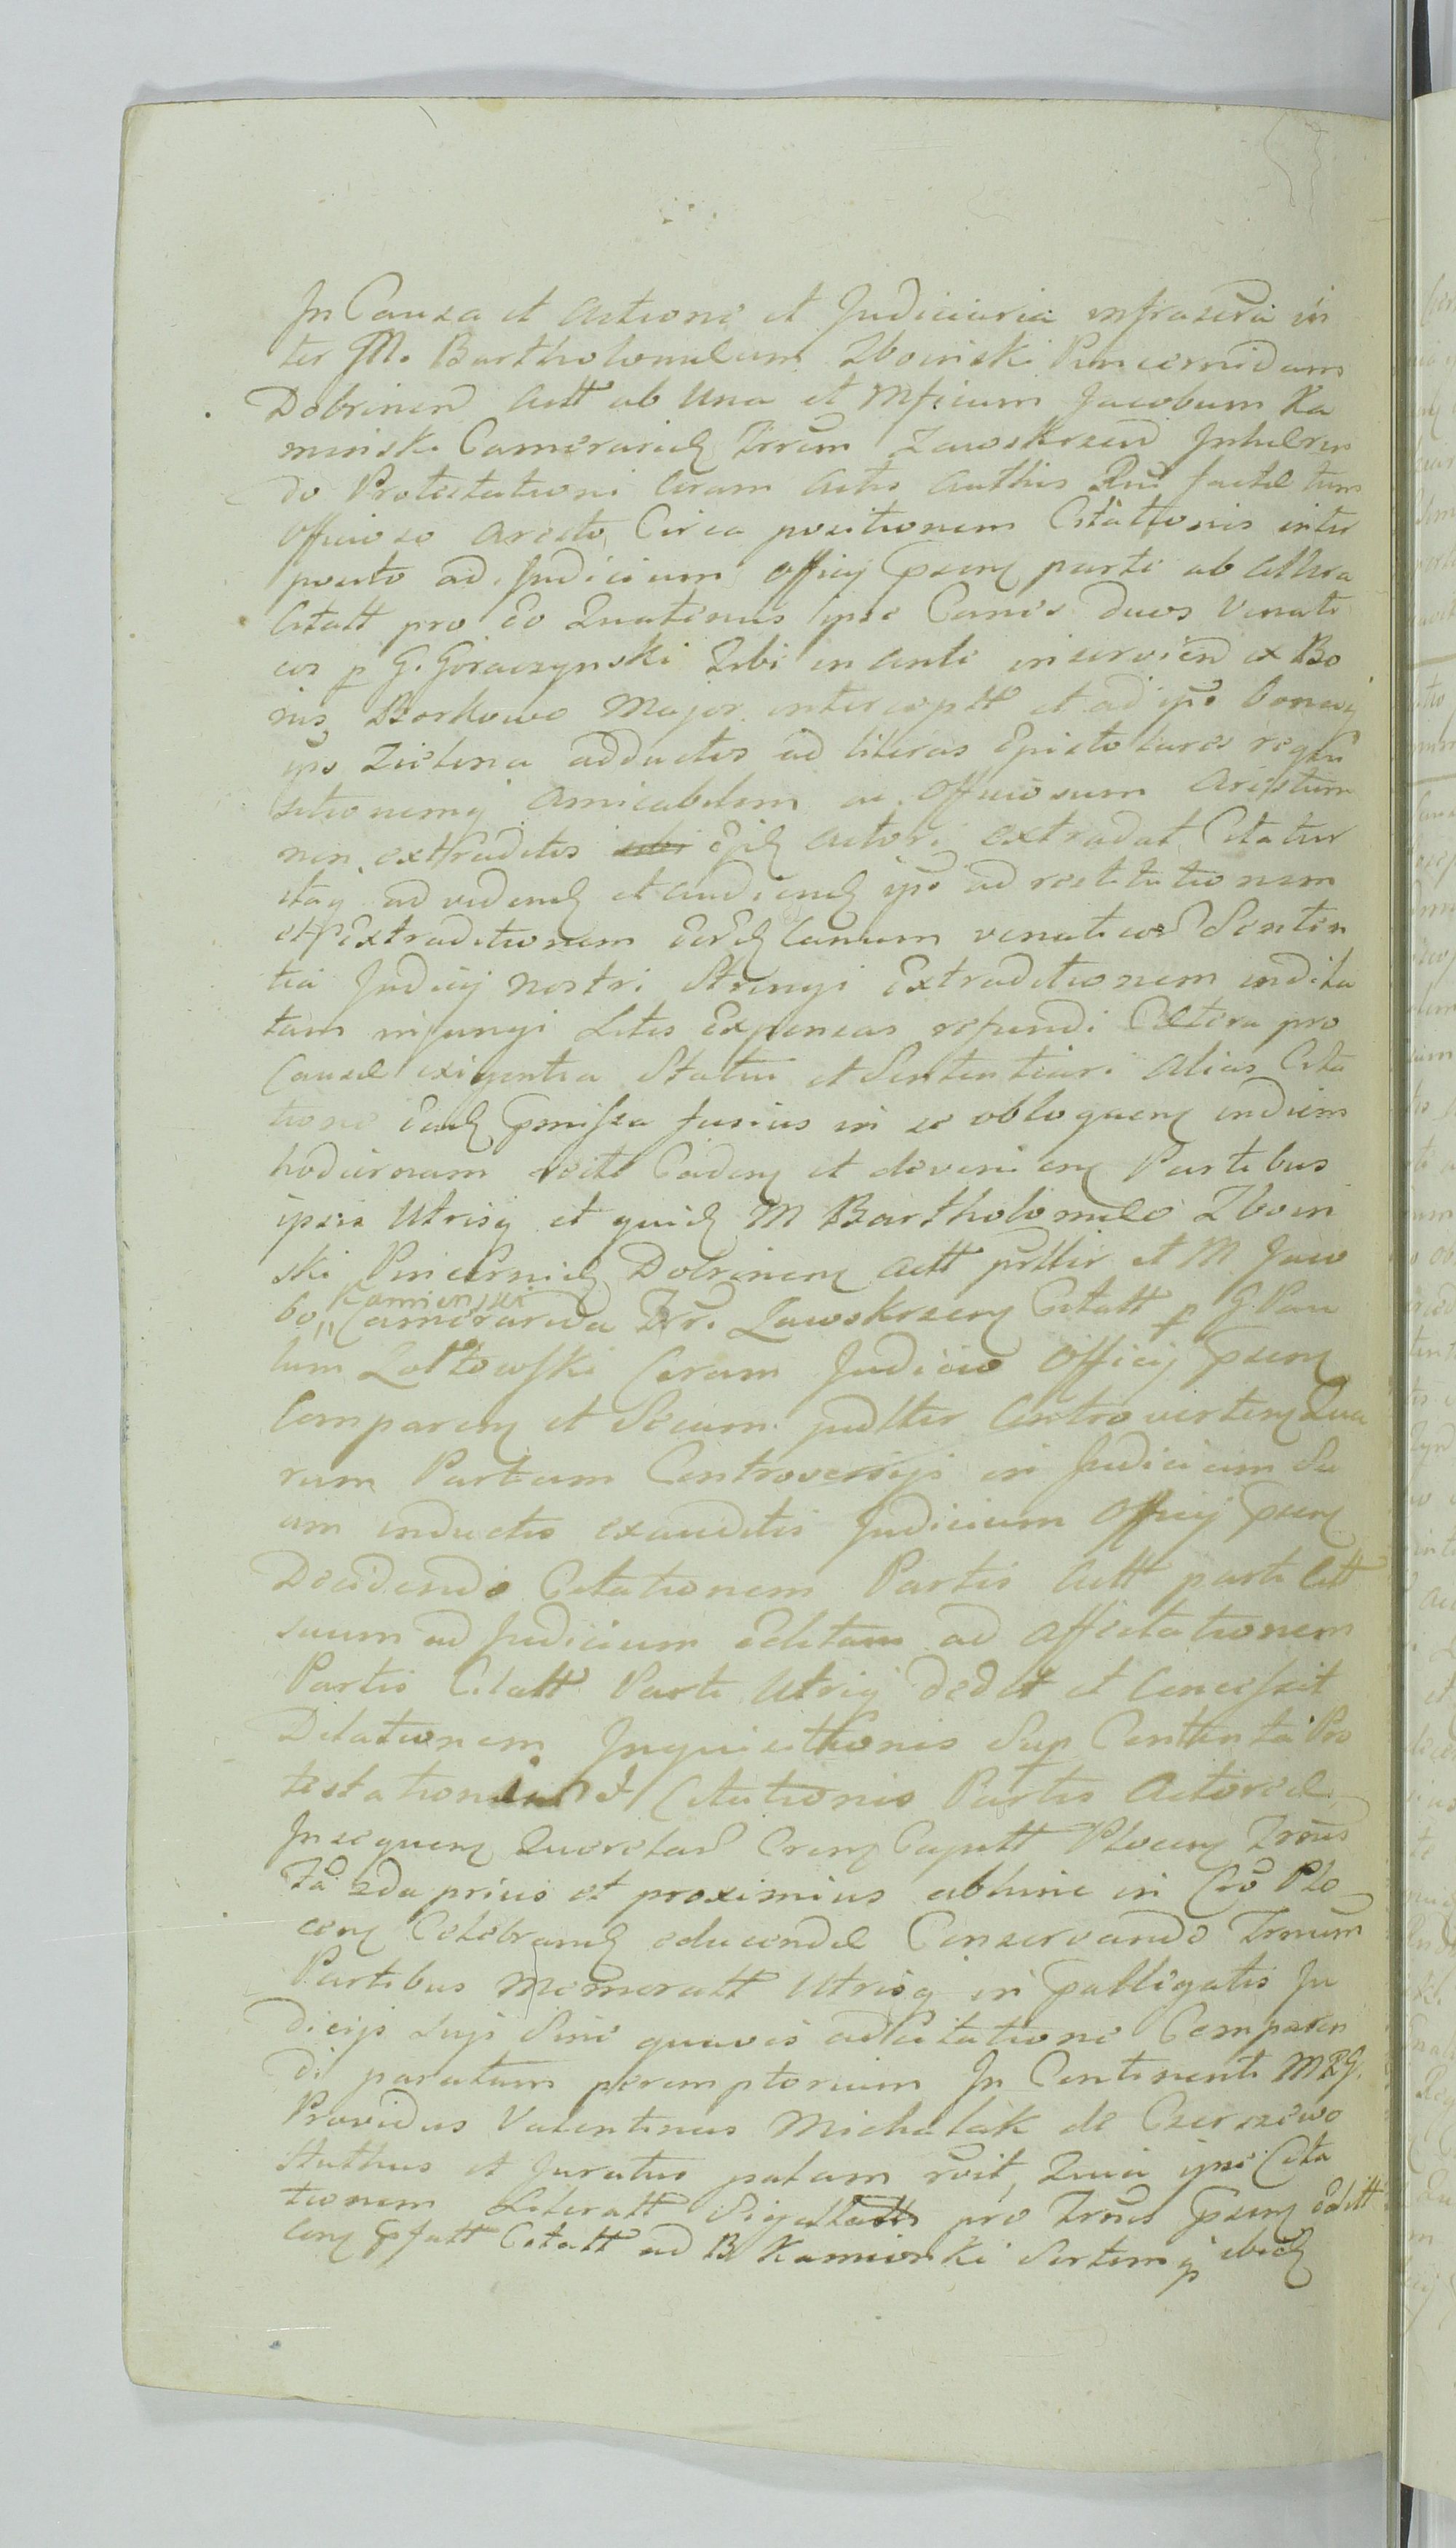 In Causa et Actione et Judiciaria infrascra in
ter M. Bartholomeum Zboinski Pincernidam
Dobrinen Actt ab Una et Mficum Jacobum Ka
minski Camerarid Trrum Zawskrzen Inhaeren
do Protestationi Coram Actis Authis Rni factae tum
Officioso Aresto Circa positionem Citationis inter
posito ad Judicium Officij psens parte ab Altera
Citatt pro Eo Quatenus ipse Canes duos Venati
cos p G. Goraczynski Sibi in Ante inservien ex Bo
nis Borkowo Major interceptt et ad ips bonaq
ips Zielona adductos ad literas Epistolares requi
sitionemq Amicabilem ac Officiosum Arestum
non extraditos Ejd Actori extradat Citatur
itaq ad vidend et audiend ips ad restitutionem
et Extraditionem Eord Canum venaticor Senten
tia Judicij Nostri Stringi Extraditionem indila
tam injungi Litis Expensas refundi Caetera pro
Causae exigentia Statui et Sententiari Alias Cita
tione Ead pmissa fusius in se obloquen in diem
hodiernam Caden et devenien Partibus
ipsis Utrisq et quid M Bartholomaeo Zboin
ski Pincernid Dobrinen Actt prllir et M. Jaco
bo Kamienski Camerarida Trr. Zawskrzen Citatt p G. Pau
lum Zołtowski Coram Judicio Officij psens
Comparen et Secum judltir Controverten Qua
rum Partium Controversijs in Judicium Su
um inductis exauditis Judicium Officij psens
Decidendo Citationem Partis Actt parti Citt
suum ad Judicium Editam ad Affectationem
Partis Citatt Parti Utriq dedit et Concessit
Dilationem Inquisitionis Sup Contenta Pro
testation et Citationis Partis Actoreae
In sequen Querelar Cren Capitt Plocen Trnis
Fa 2da prius et proximius abhinc in Cro Plo
cen Celebrand educendae Conservando Trnum
Partibus Memoratt Utrisq in palligatis Ju
dicijs Sine quavis adcitatione Comparen
di paratum peremptorium In Continenti MRG.
Providus Valentinus Michalak de Czerzewo
Stuthus et Juratus palam rcit, Quia ipse Cita
tionem Literatt Sigillatt pro Trno psen Editt
Cong pfatt Citatt ad B Kamionki Sortemq ibid